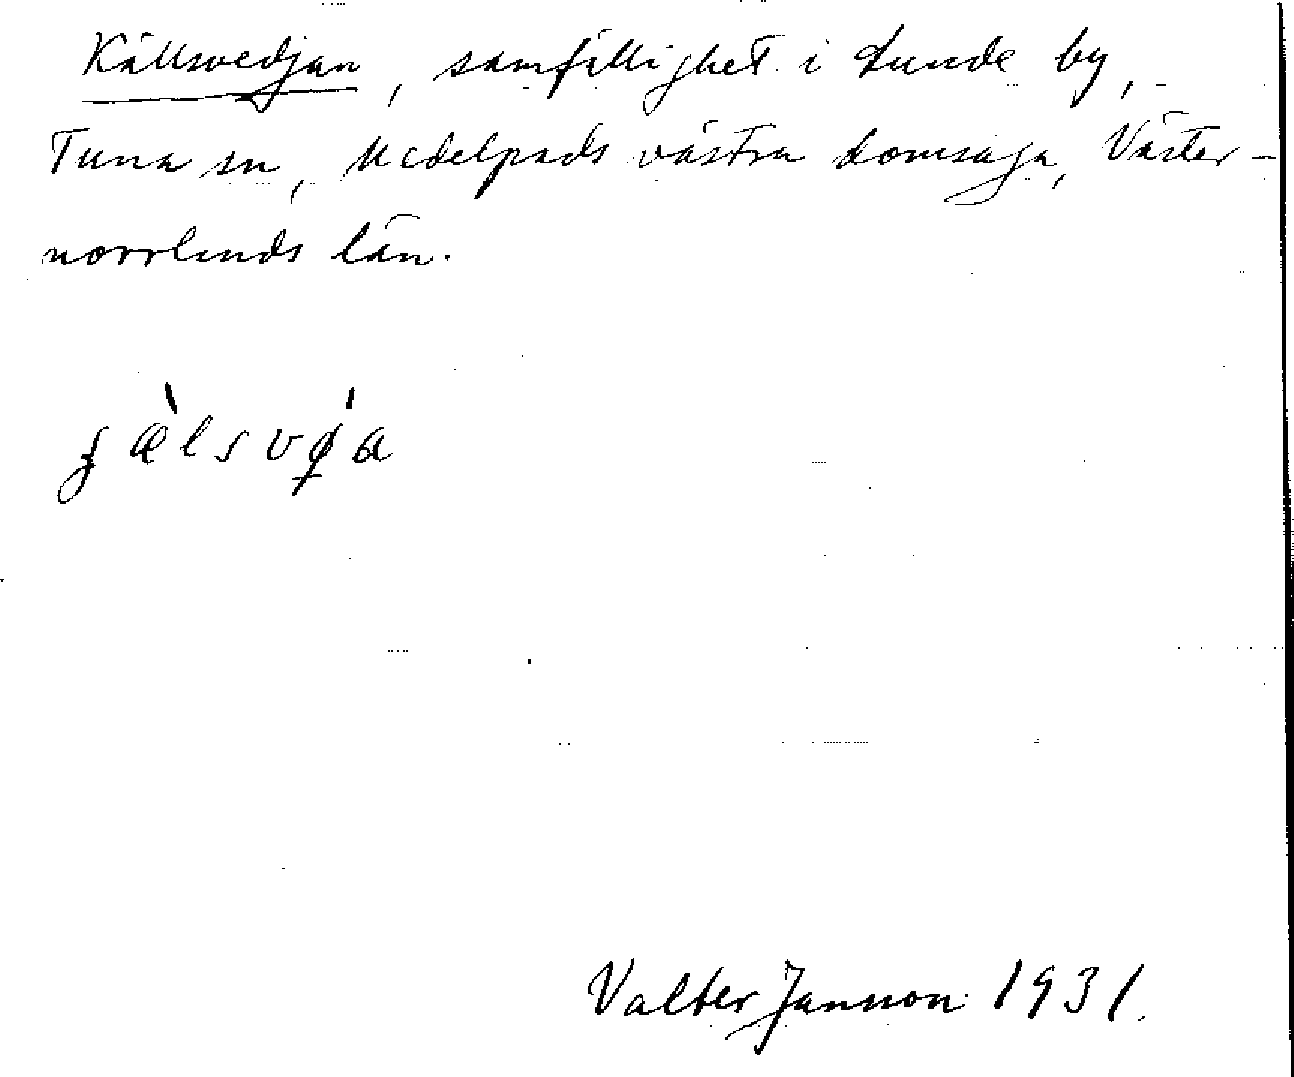 Källsvedjan, samfällighet i Lunde by,
Tuna sn, Medelpads västra domsaga, Väster-
norrlands län.
Valter Jansson 1931.